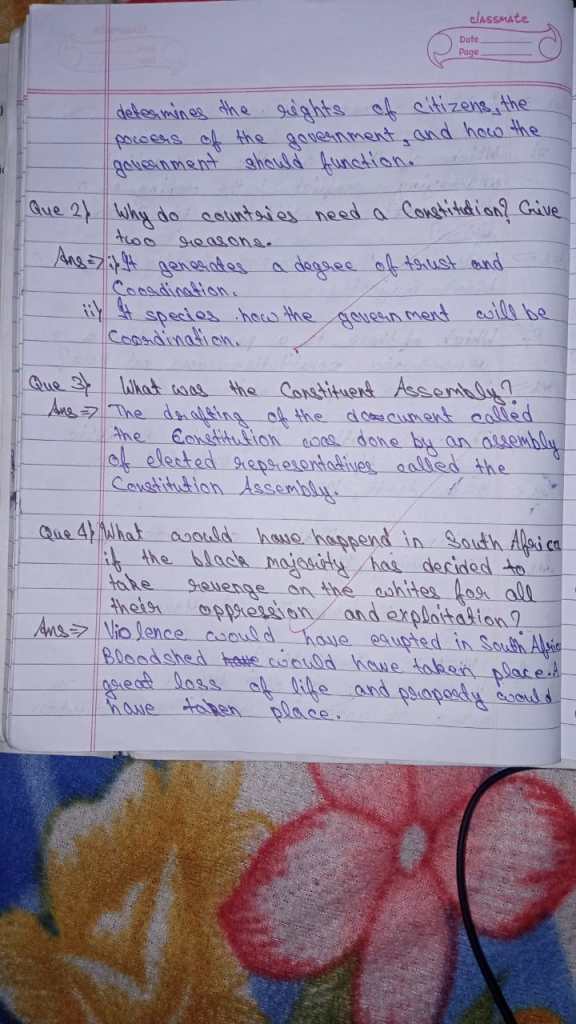 classmate
Date
Page
determines the rights of citizens, the
powers of the government, and how the
government should function.
Que 2) Why do countries need a Constitution? Give
two reasons.
Ans⇒ i) It generates a degree of trust and
Coordination.
ii) It species how the government will be
Coordination.
Que 3) What was the Constituent Assembly?
Ans⇒ The drafting of the document called
the Constitution was done by an assembly
of elected representatives called the
Constitution Assembly.
Que 4) What would have happend in South Africa
if the black majority has decided to
take revenge on the whites for all
their oppression and exploitation?
Ans⇒ Violence would have erupted in South Africa
Bloodshed would have taken place. A
great loss of life and propeedy would
have taken place.